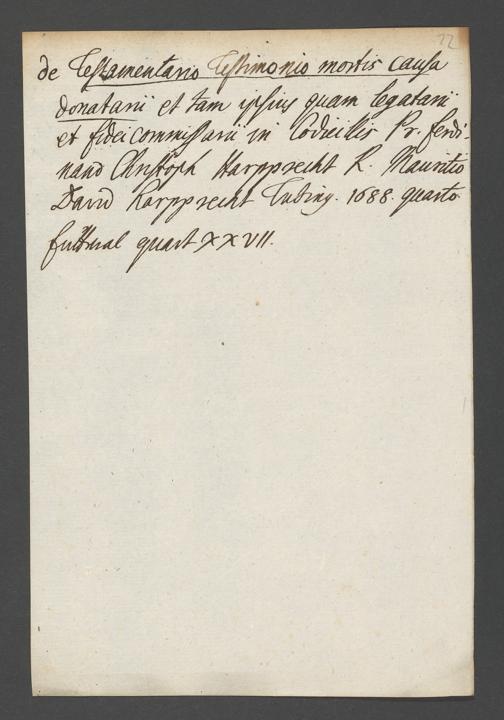 22
de Testamentario Testimonio mortis causa
donatarii et tam ipsius quam legatarii
et fideicommissarii in Codicillis Pr. Ferdi-
nand Christoph Harpprecht R. Mauritio
David Harpprecht Tubing. 1688. quarto
quart XXVII.